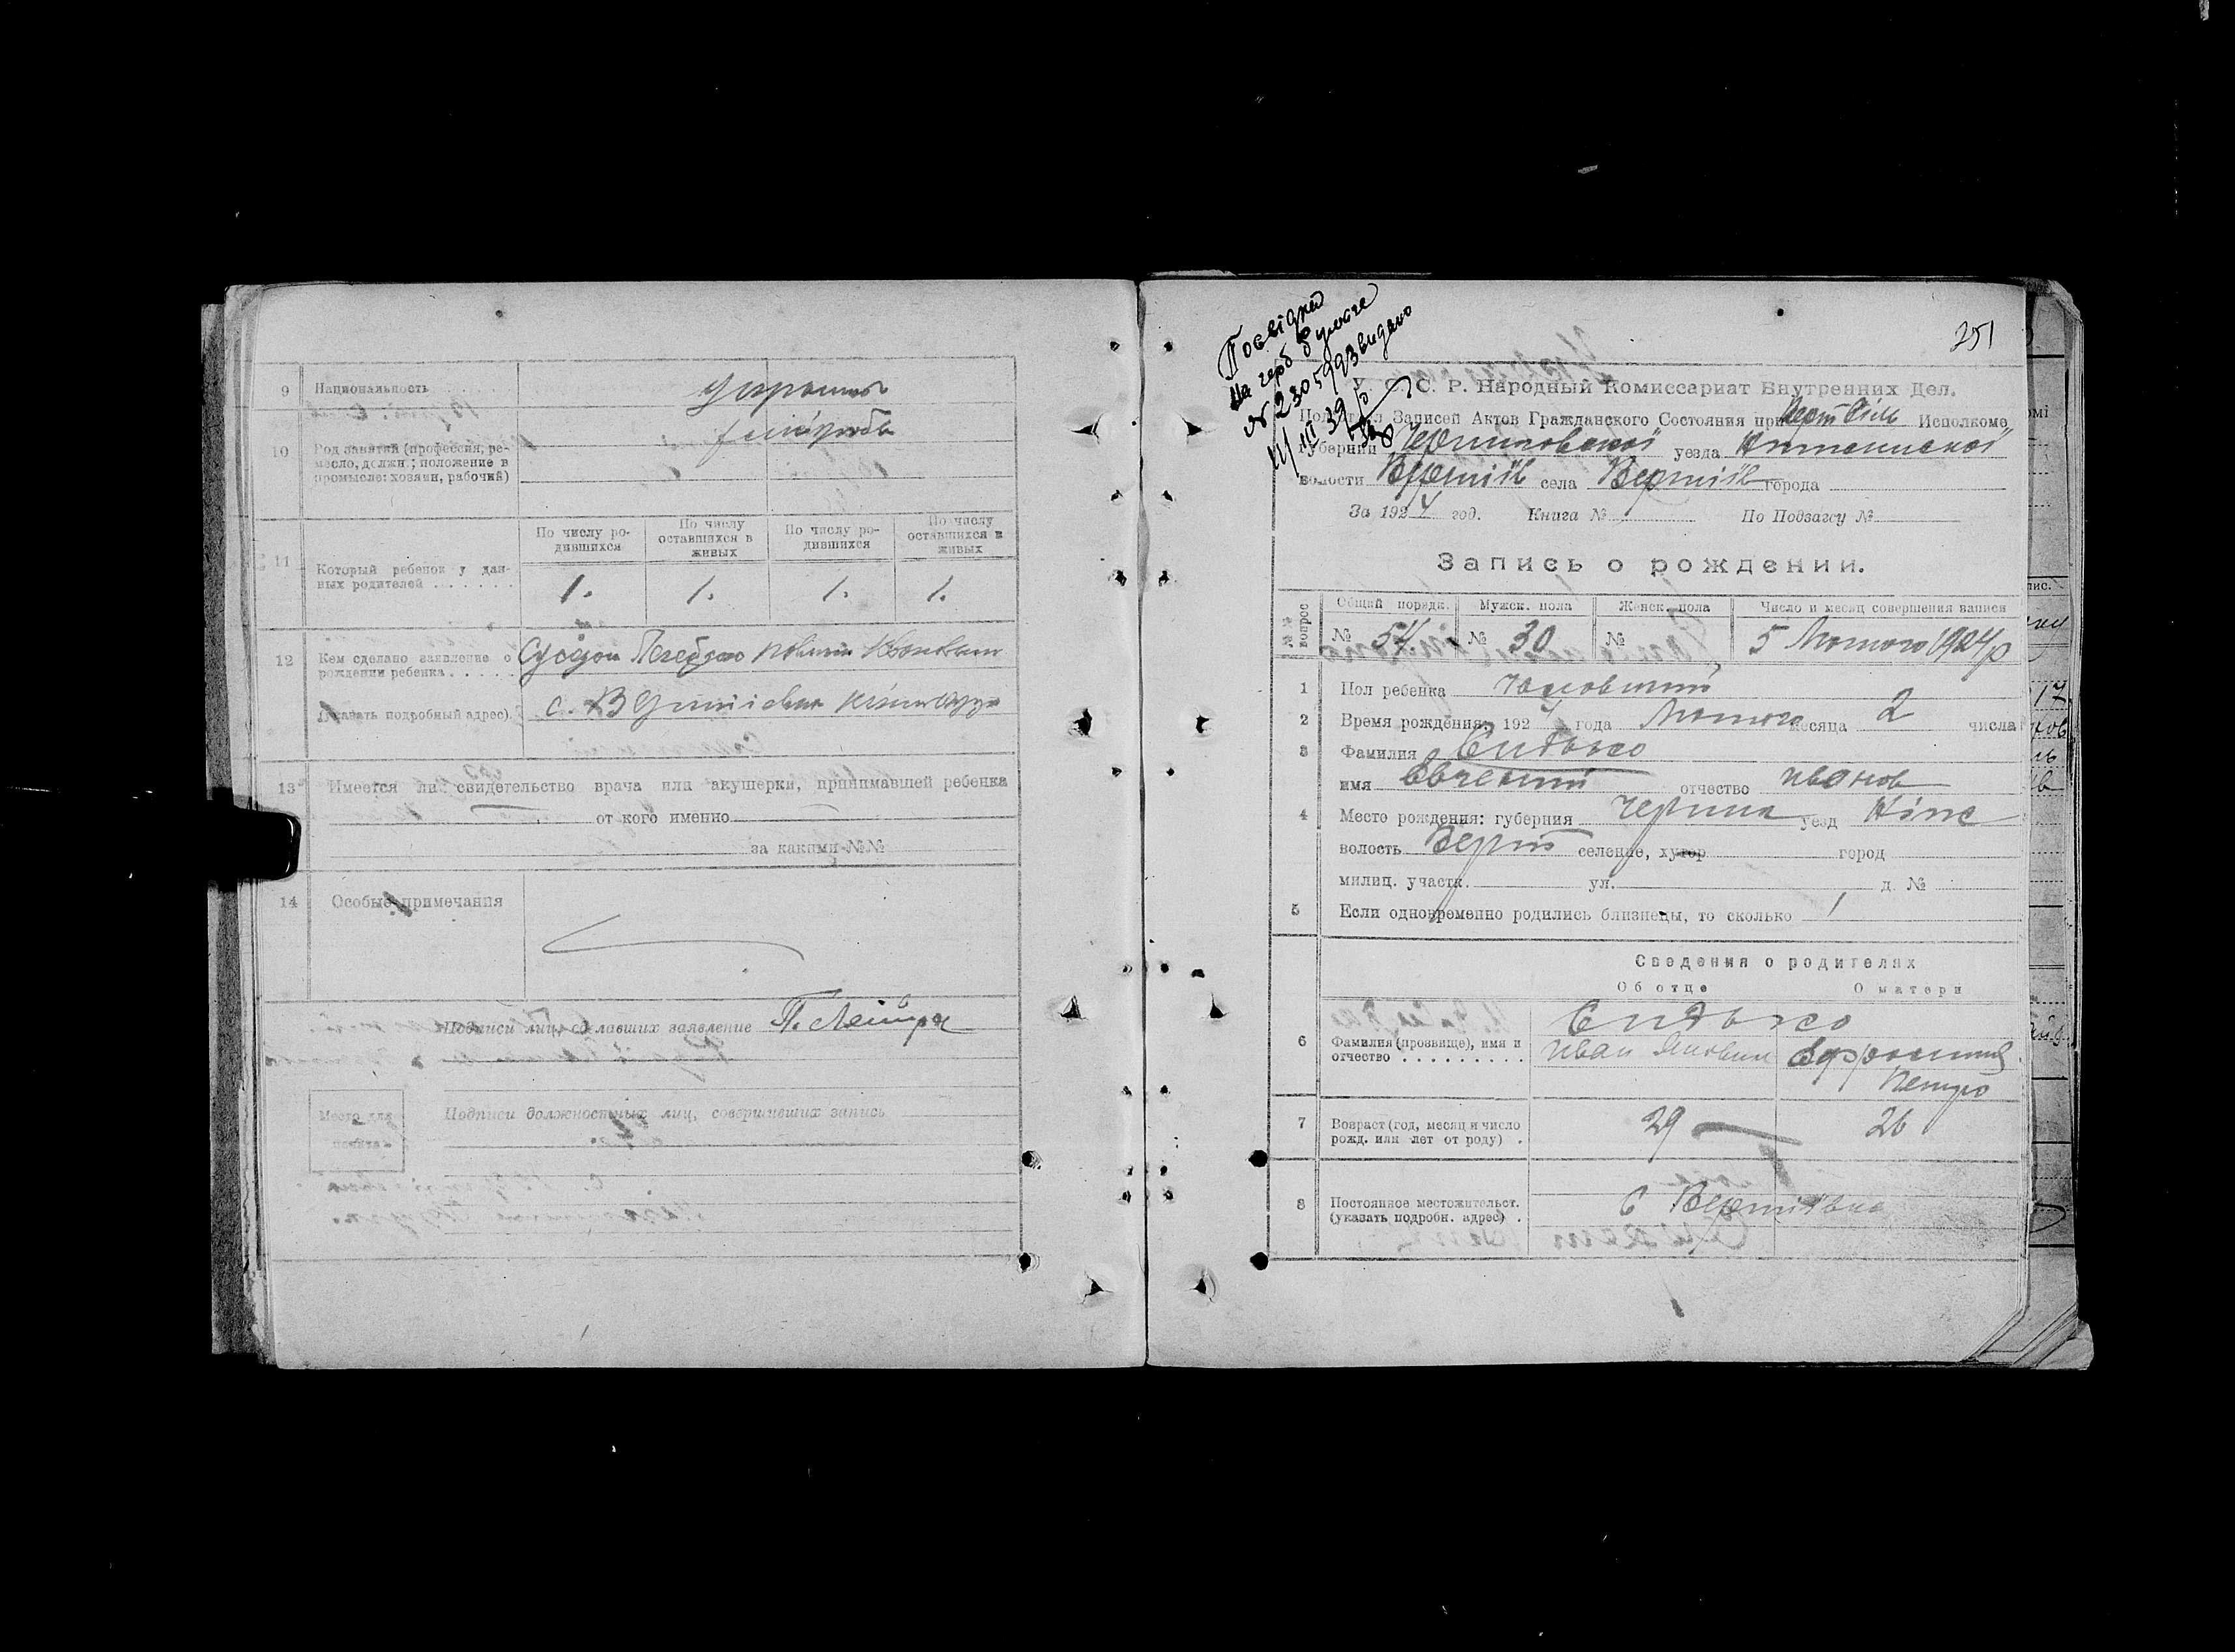 9 Национальность
10 Род занятий (профессия, ре-
месло, должн.; положение в
промысле: хозяин, рабочий)
По числу ро-
дившихся
По числу
оставшихся в
живых
По числу ро-
дившихся
По числу
оставшихся в
живых
11 Который ребенок у дан-
ных родителей
1. 1. 1. 1.
12 Кем сделано заявление о
рождении ребенка
(указать подробный адрес).
13 Имеется ли свидетельство врача или акушерки, принимавшей ребенка
от кого именно
за какими №№
14 Особые примечания
Подписи лиц, сделавших заявление П.
Место для
печати
Подписи должностных лиц, совершивших запись
251
Посвідка
на герб бумаге
№ 230599 видано
III 39 р
С. Р. Народный Комиссариат Внутренних Дел.
Подотдел Записей Актов Гражданского Состояния при Исполкоме
Губернии Черниговской уезда
волости Вертіїв села Вертіїв города
За 1924 год. Книга № По Подзагсу №
Запись о рождении.
вопрос
Общий порядк. Мужск. пола Женск. пола Число и месяц совершения записи
№ 54 № 30 № 5 Лютого 1924 р
1 Пол ребенка чоловичий
2 Время рождения: 1924 года Лютого месяца 2 числа
3 Фамилия Сидько
имя Евгений отчество Иванов
4 Место рождения: губерния Черниг уезд Ніж
волость Верт селение, хутор город
милиц. участк. ул. д. №
5 Если одновременно родились близнецы, то сколько 1
Сведения о родителях
Об отце О матери
6 Фамилия (прозвище), имя и
отчество
Сидько
Иван Якович
Петро
7 Возраст (год, месяц и число
рожд. или лет от роду)
29 26
8 Постоянное местожительст.
(указать подробн. адрес)
с Вертіївка